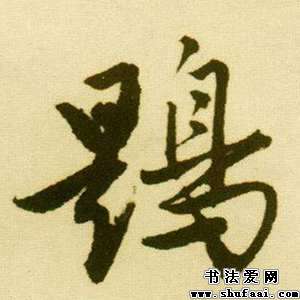 鶪
书法爱网
www.shufaai.com